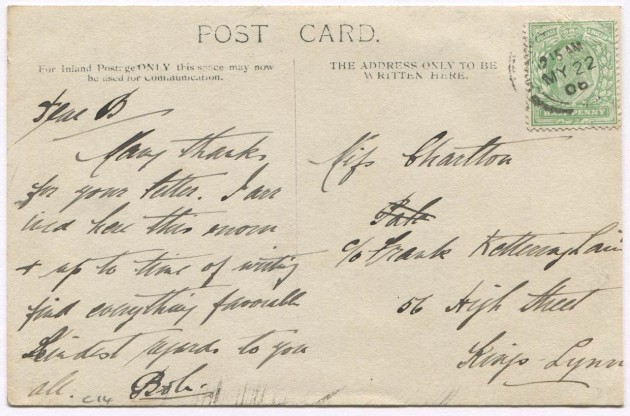 POST CARD.
For Inland Postage ONLY this space may now
be used for Communication.
THE ADDRESS ONLY TO BE
WRITTEN HERE.
9.15 AM
MY 22
06
HALFPENNY
Dear B
Many thanks
for your letter. I arr
here this morn
+ up to time of writing
find everything favorable
Kindest regards to you
all. Bob.
Miss Charlton
c/o Frank
56 High Street
Kings-Lynn